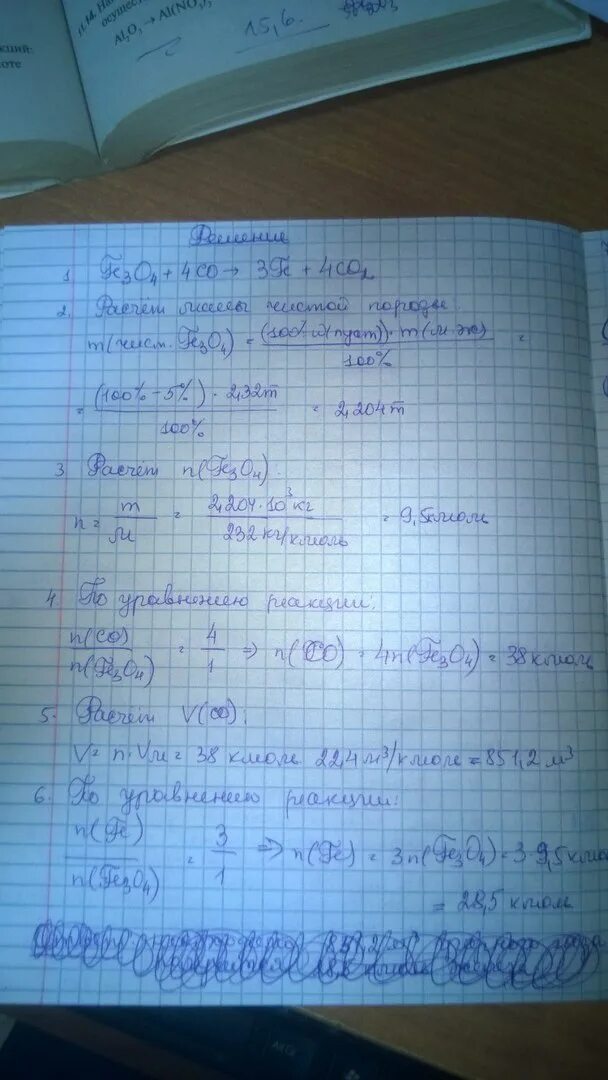 11.14. На
осущес
Al₂O₃ → Al(NO₃)₃
15,6
кций:
оте
Решение
1. Fe₃O₄ + 4CO → 3Fe + 4CO₂
2. Расчёт массы чистой породы.
m(чист. Fe₃O₄) = (100% - ω(пуст))·m(м.ж) / 100% =
= (100% - 5%) · 2,32т / 100% = 2,204т
3 Расчёт n(Fe₃O₄).
n = m / M = 2,204·10³ кг / 232 кг/кмоль = 9,5кмоль
4. По уравнению реакции:
n(CO) / n(Fe₃O₄) = 4 / 1 ⇒ n(CO) = 4n(Fe₃O₄) = 38 кмоль
5. Расчёт V(CO):
V = n·Vм = 38 кмоль 22,4 м³/кмоль = 851,2 м³
6. По уравнению реакции:
n(Fe) / n(Fe₃O₄) = 3 / 1 ⇒ n(Fe) = 3n(Fe₃O₄) = 3·9,5 кмо
= 28,5 кмоль
Alt Gr